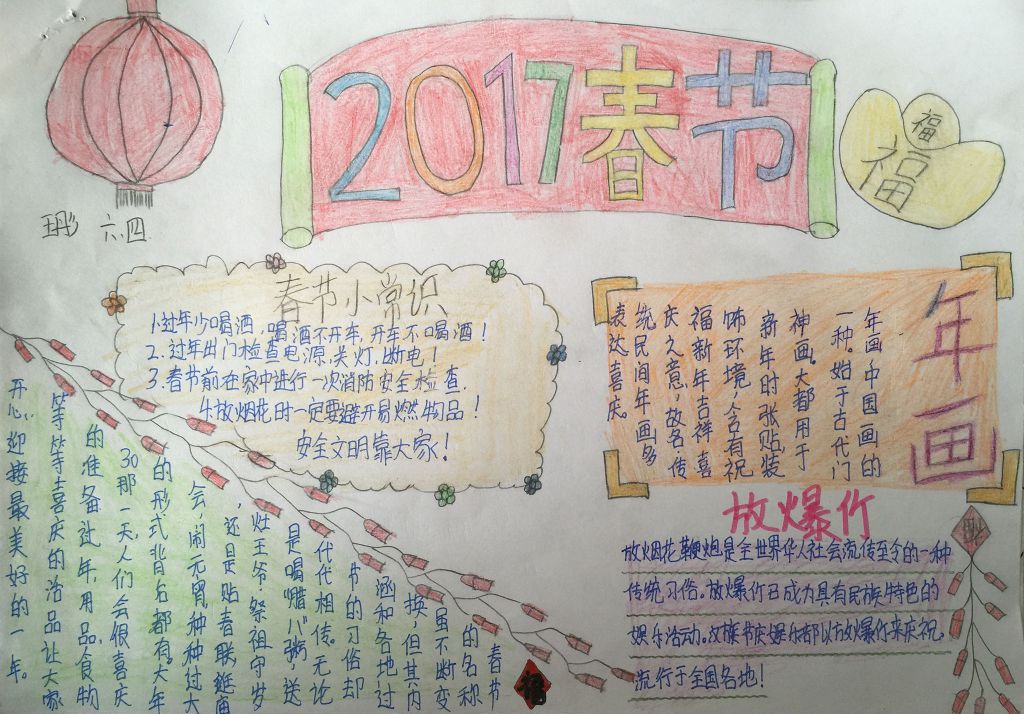 2017春节
福
福
王彤 六.四
春节小常识
1.过年少喝酒,喝酒不开车,开车不喝酒!
2.过年出门检查电源,关灯,断电!
3.春节前在家中进行一次消防安全检查.
4放烟花时一定要避开易燃物品!
安全文明靠大家!
年画
年画中国画的
一种。始于古代门
神画。大都用于
新年时张贴,装
饰环境,含有祝
福新年吉祥喜
庆之意,故名.传
统民间年画多
表达喜庆。
放爆竹
放烟花鞭炮是全世界华人社会流传至今的一种
传统习俗。放爆竹已成为具有民族特色的
娱乐活动。故族节庆娱乐都以放爆竹来庆祝。
流行于全国各地!
春节
的名称
虽不断变
换,但其内
涵和各地过
节的习俗却
代代相传。无论
是喝腊八粥送
灶王爷.祭祖守岁
,还是贴春联逛庙
会,闹元宵,种种过大
的形式背后都有。大年
30那一天,人们会很喜庆
的准备过年,用品,食物
等等喜庆的洛品让大家
开心,迎接最美好的一年。
福